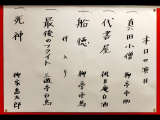 本日の演目
一 真田小僧 柳亭市助
一 代書屋 朝日庵白酒
一 船徳 柳亭市馬
仲入り
一 最後のフライト 三遊亭白鳥
一 死神 柳家喬太郎